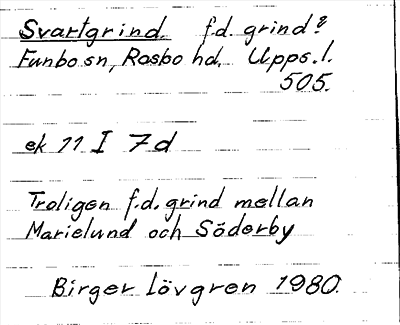 Svartgrind. f.d. grind?
Funbo sn, Rasbo hd. Upps. l.
505.
ek 11 I 7d
Troligen f.d. grind mellan
Marielund och Söderby
Birger Lövgren 1980.